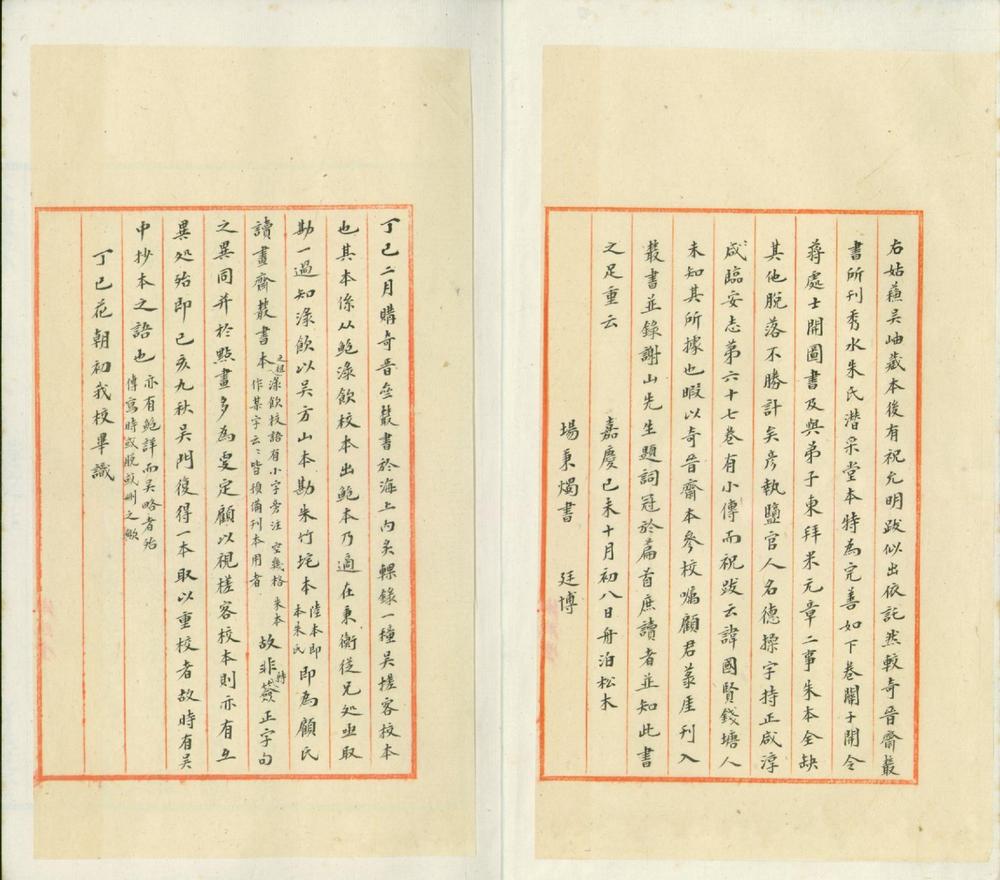 右姑蘇吳岫藏本後有祝允明跋似出依託然較奇晉齋叢
書所刊秀水朱氏潛采堂本特為完善如下卷關子開令
蔣處士開圖書及與弟子東拜米元章二事朱本全缺
其他脫落不勝計矣彥執鹽官人名德操字持正咸淳
咸臨安志第六十七卷有小傳而祝跋云諱國賢錢塘人
未知其所據也暇以奇晉齋本參校囑顧君菉厓刊入
叢書並錄謝山先生題詞冠於篇首庶讀者並知此書
之足重云
嘉慶己未十月初八日舟泊松木
場秉燭書 廷博
丁巳二月購奇晉叢書於海上內炙輠錄一種吳槎客校本
也其本係從鮑淥飲校本出鮑本乃適在秉衡從兄処亟取
勘一過知淥飲以吳方山本勘朱竹垞本陸本即本朱氏即為顧氏
讀畫齋叢書本之祖淥飲校語有小字旁注空幾格朱本作某字云云皆預備刊本用者故非特簽正字句
之異同并於點畫多為更定顧以視槎客校本則亦有互
異処殆即己亥九秋吳門復得一本取以重校者故時有吳
中抄本之語也亦有鮑詳而吳略者殆傳寫時或脫或刪之歟
丁巳花朝初我校畢識